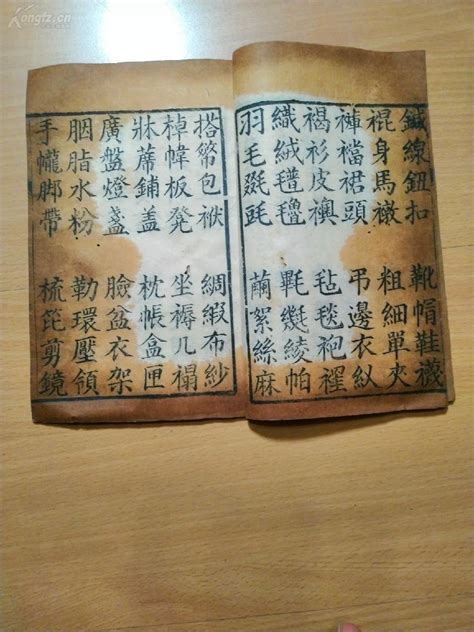 Kongfz.cn
鍼線鈕扣 靴帽鞋襪
身馬 粗細單夾
褲襠裙頭 吊邊衣
褐衫皮襖 毡毯袍
織絨氆氇 綾帕
羽毛 繭絮絲麻
搭幣包袱 綢緞布紗
棹幃板凳 坐褥几榻
牀蓆鋪盖 枕帳盒匣
廣盤燈盞 臉盆衣架
胭脂水粉 勒環壓領
手脚帶 梳篦剪鏡